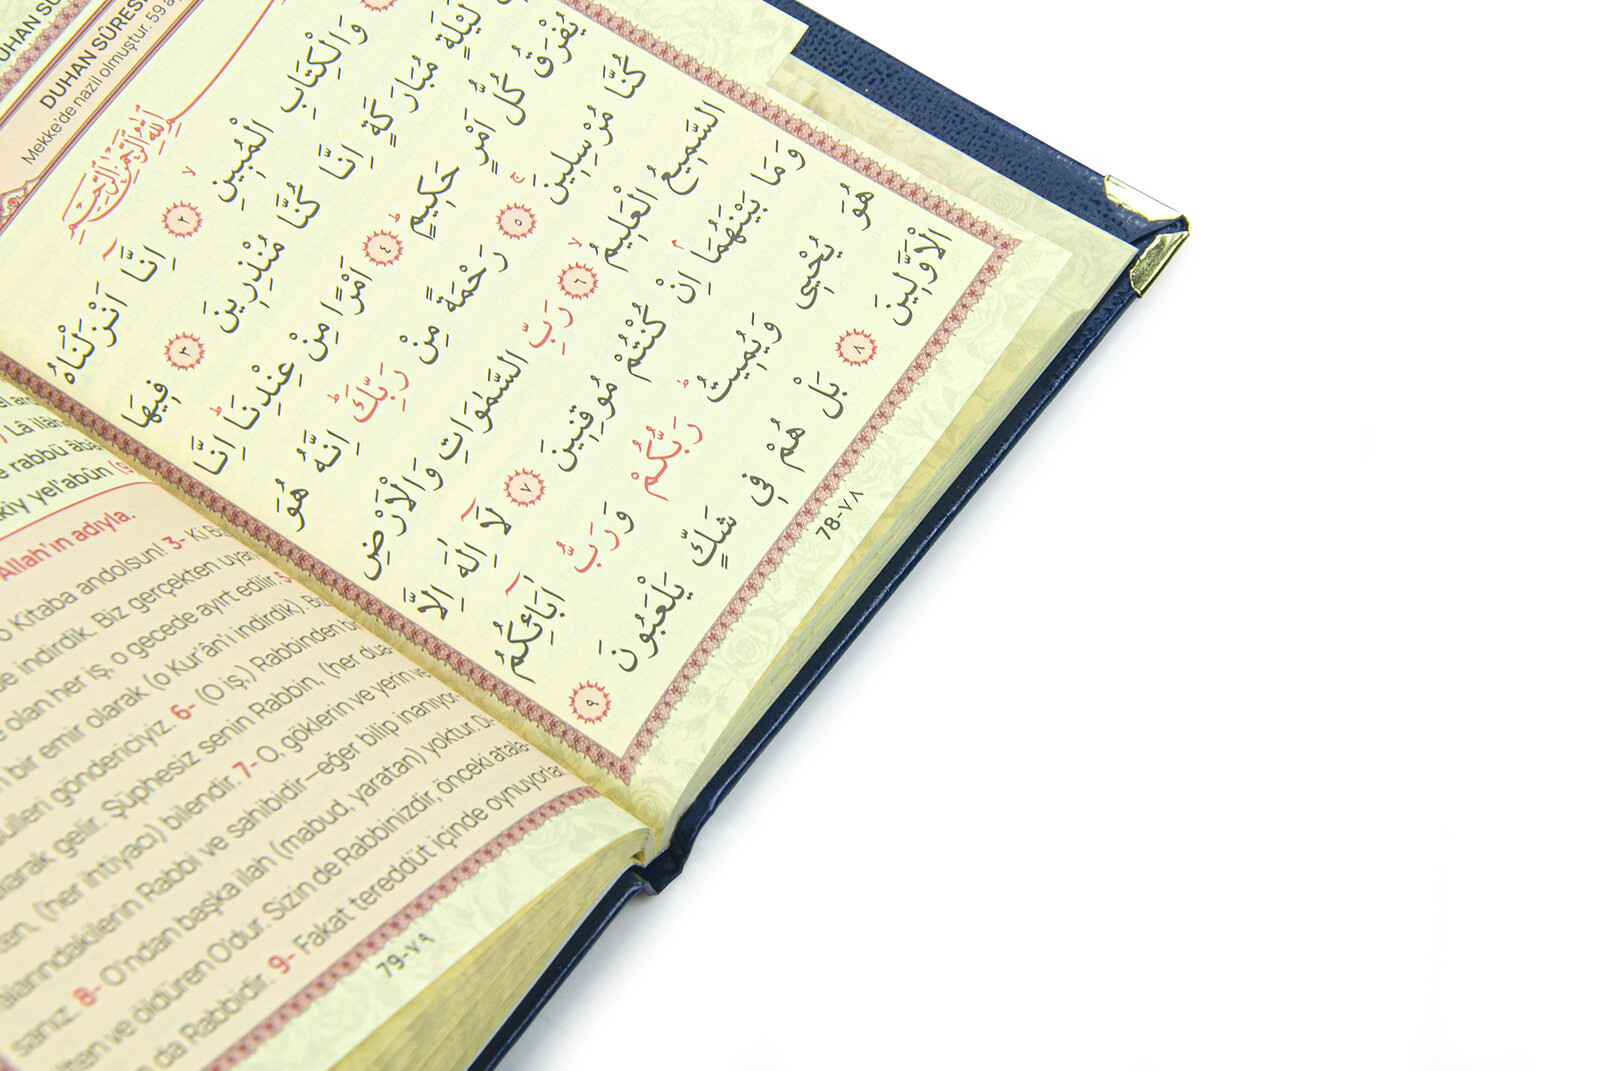 DUHAN SÛRESİ
Mekke'de nazil olmuştur. 59
بِسْمِ اللّٰهِ الرَّحْمٰنِ الرَّحِيمِ
وَالْكِتَابِ الْمُبِينِ ﴿٢﴾ اِنَّٓا اَنْزَلْنَاهُ
لَيْلَةٍ مُبَارَكَةٍ اِنَّا كُنَّا مُنْذِرِينَ ﴿٣﴾ فِيهَا
يُفْرَقُ كُلُّ اَمْرٍ حَكِيمٍ ﴿٤﴾ اَمْرًا مِنْ عِنْدِنَا اِنَّا
كُنَّا مُرْسِلِينَ ﴿٥﴾ رَحْمَةً مِنْ رَبِّكَ اِنَّهُ هُوَ
السَّمِيعُ الْعَلِيمُ ﴿٦﴾ رَبِّ السَّمٰوَاتِ وَالْاَرْضِ
وَمَا بَيْنَهُمَا اِنْ كُنْتُمْ مُوقِنِينَ ﴿٧﴾ لَٓا اِلٰهَ اِلَّا
هُوَ يُحْيِى وَيُمِيتُ رَبُّكُمْ وَرَبُّ اٰبَٓائِكُمُ
الْاَوَّلِينَ ﴿٨﴾ بَلْ هُمْ فِى شَكٍّ يَلْعَبُونَ ﴿٩﴾
78-٧٨
Lâ ilâ
rabbü âbâ
yel'abûn (9)
Allah'ın adıyla.
o Kitaba andolsun! 3- Ki B
indirdik. Biz gerçekten uyar
olan her iş, o gecede ayırt edilir. 5-
bir emir olarak (o Kur'ân'ı indirdik). Biz
göndericiyiz. 6- (O iş,) Rabbinden b
gelir. Şüphesiz senin Rabbin, (her dua
(her ihtiyacı) bilendir. 7- O, göklerin ve yerin ve
Rabbi ve sahibidir—eğer bilip inanıyor
sanız. 8- O'ndan başka ilah (mabud, yaratan) yoktur. Di
ve öldüren O'dur. Sizin de Rabbinizdir, önceki atala
da Rabbidir. 9- Fakat tereddüt içinde oynuyorlar
79-٧٩